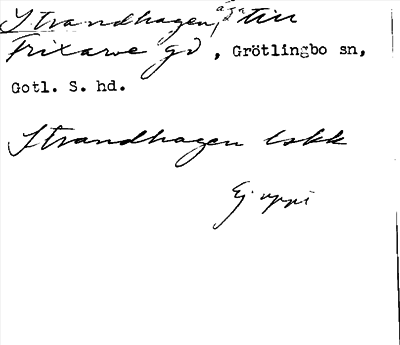 Strandhagen, äga till
Frixarve gd, Grötlingbo sn,
Gotl. S. hd.
Strandhagen lskk
Ej uppt